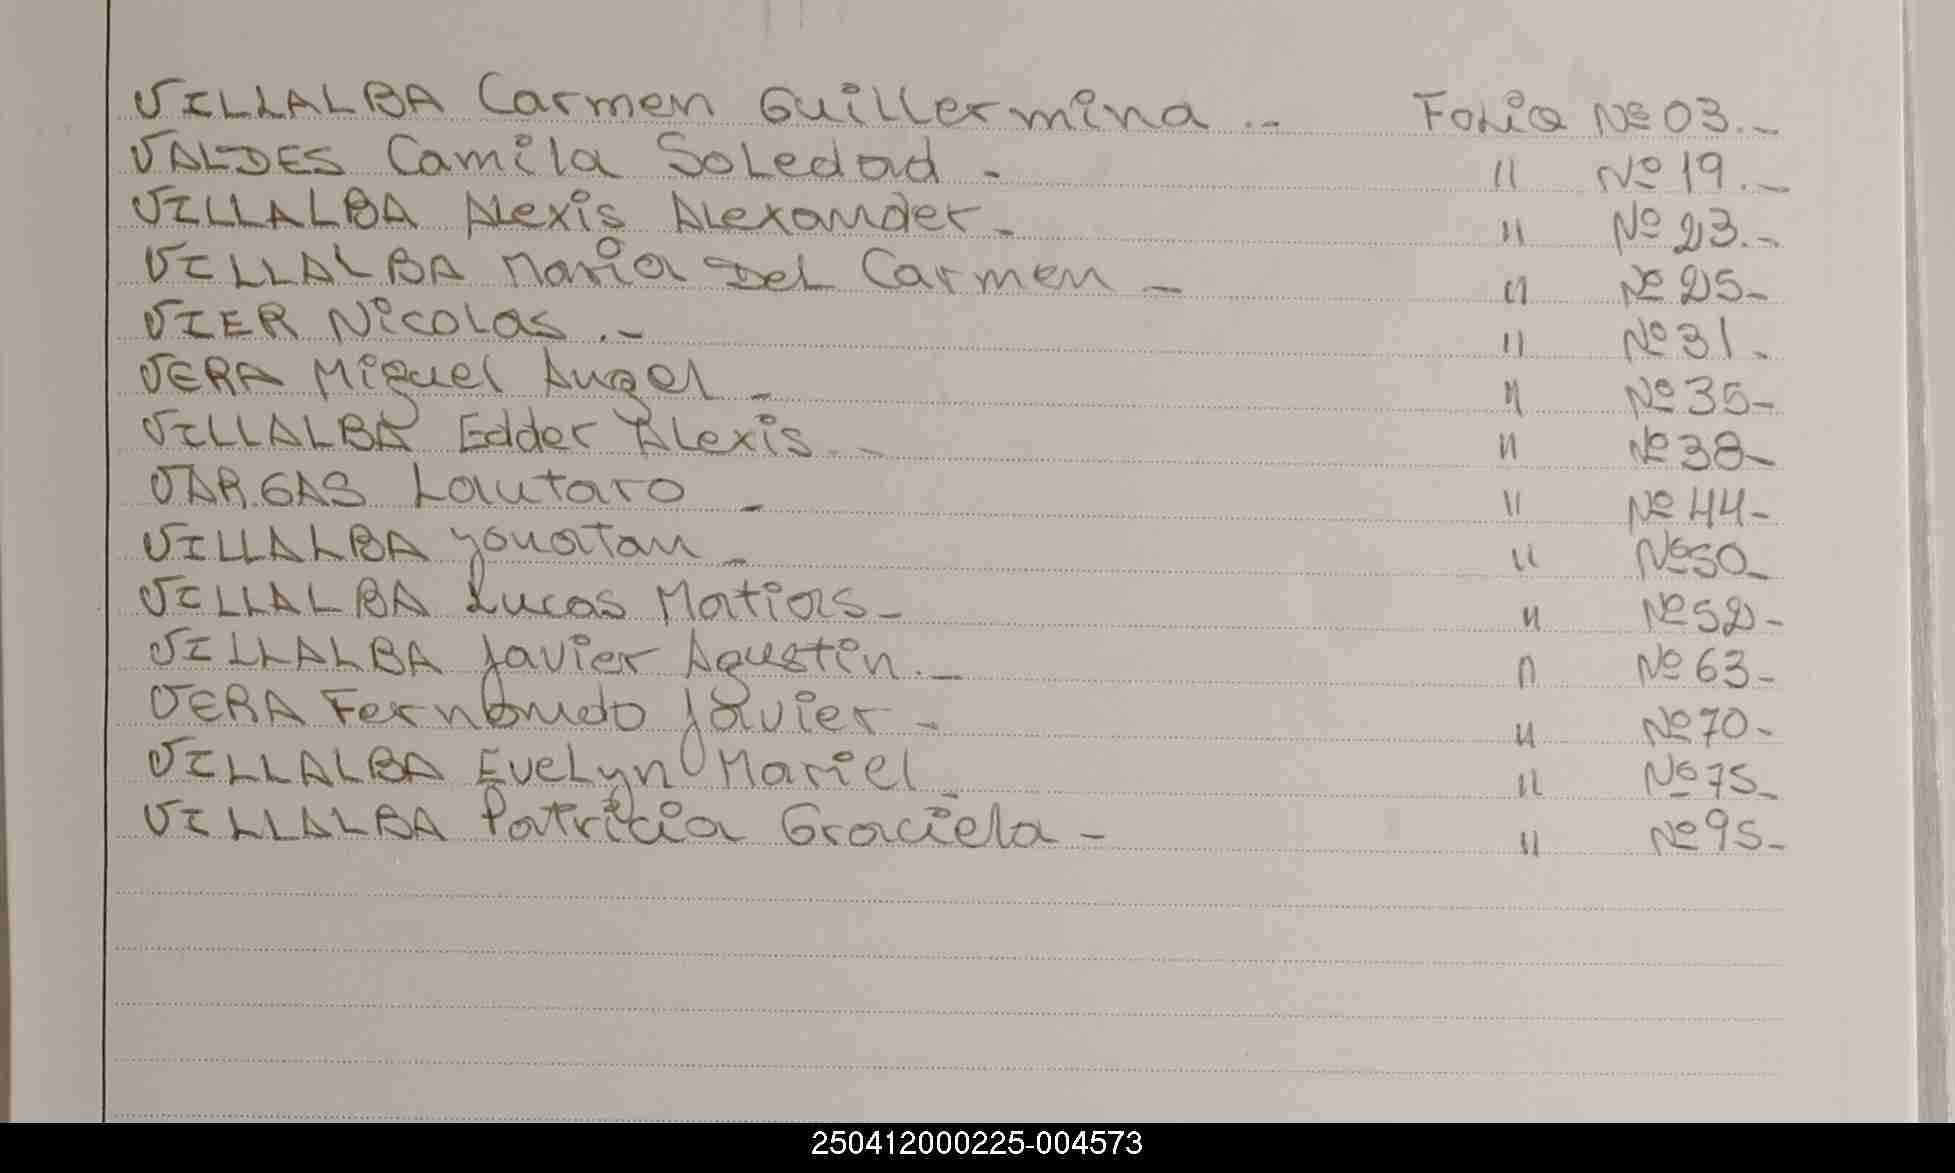 VILLALBA Carmen Guillermina .- Folio Nº 03.-
VALDES Camila Soledad - " Nº 19.-
VILLALBA Alexis Alexander - " Nº 23.-
VILLALBA Maria Del Carmen - " Nº 25-
VIER Nicolas .- " Nº 31.
VERA Miguel Angel - " Nº 35-
VILLALBA Edder Alexis .- " Nº 38-
VARGAS Lautaro - " Nº 44-
VILLALBA Yonatan - " Nº 50-
VILLALBA Lucas Matias - " Nº 52-
VILLALBA Javier Agustin .- " Nº 63-
VERA Fernando Javier - " Nº 70-
VILLALBA Evelyn Mariel - " Nº 75-
VILLALBA Patricia Graciela - " Nº 95-
250412000225-004573